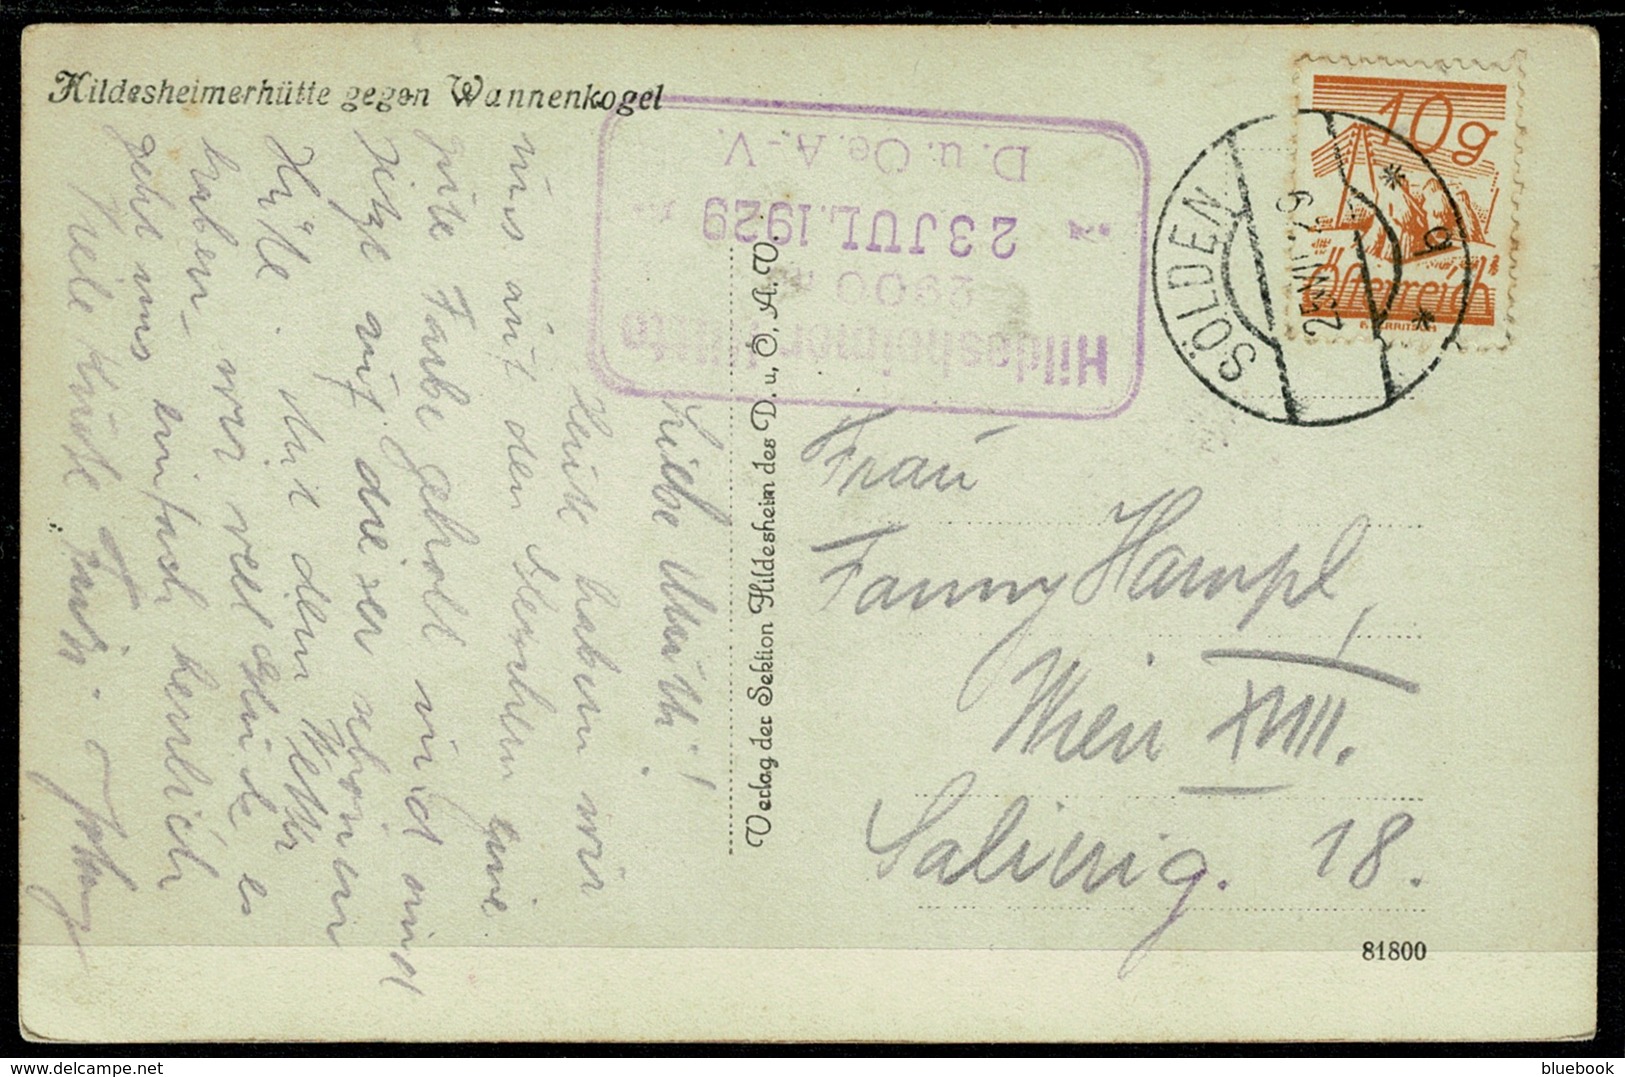 Hildesheimerhütte gegen Wannenkogel
Hildesheimer Hütte
2900 m
23.JUL.1929
D. u. Oe. A.-V.
10g
Österreich
SÖLDEN
25.VII.29
* b *
Liebe Mutti!
Heute haben wir
uns auf den
gute Farbe geholt und sind
jetzt auf dieser schönen
Hütte. Mit dem Wetter
haben wir viel Glück es
geht uns einfach herrlich
Viele Küsse
Verlag der Sektion Hildesheim des D. u. Ö. A. V.
Frau
Fanny Hampl,
Wien XVIII.
Salierig. 18.
81800
delcampe.net
bluebook